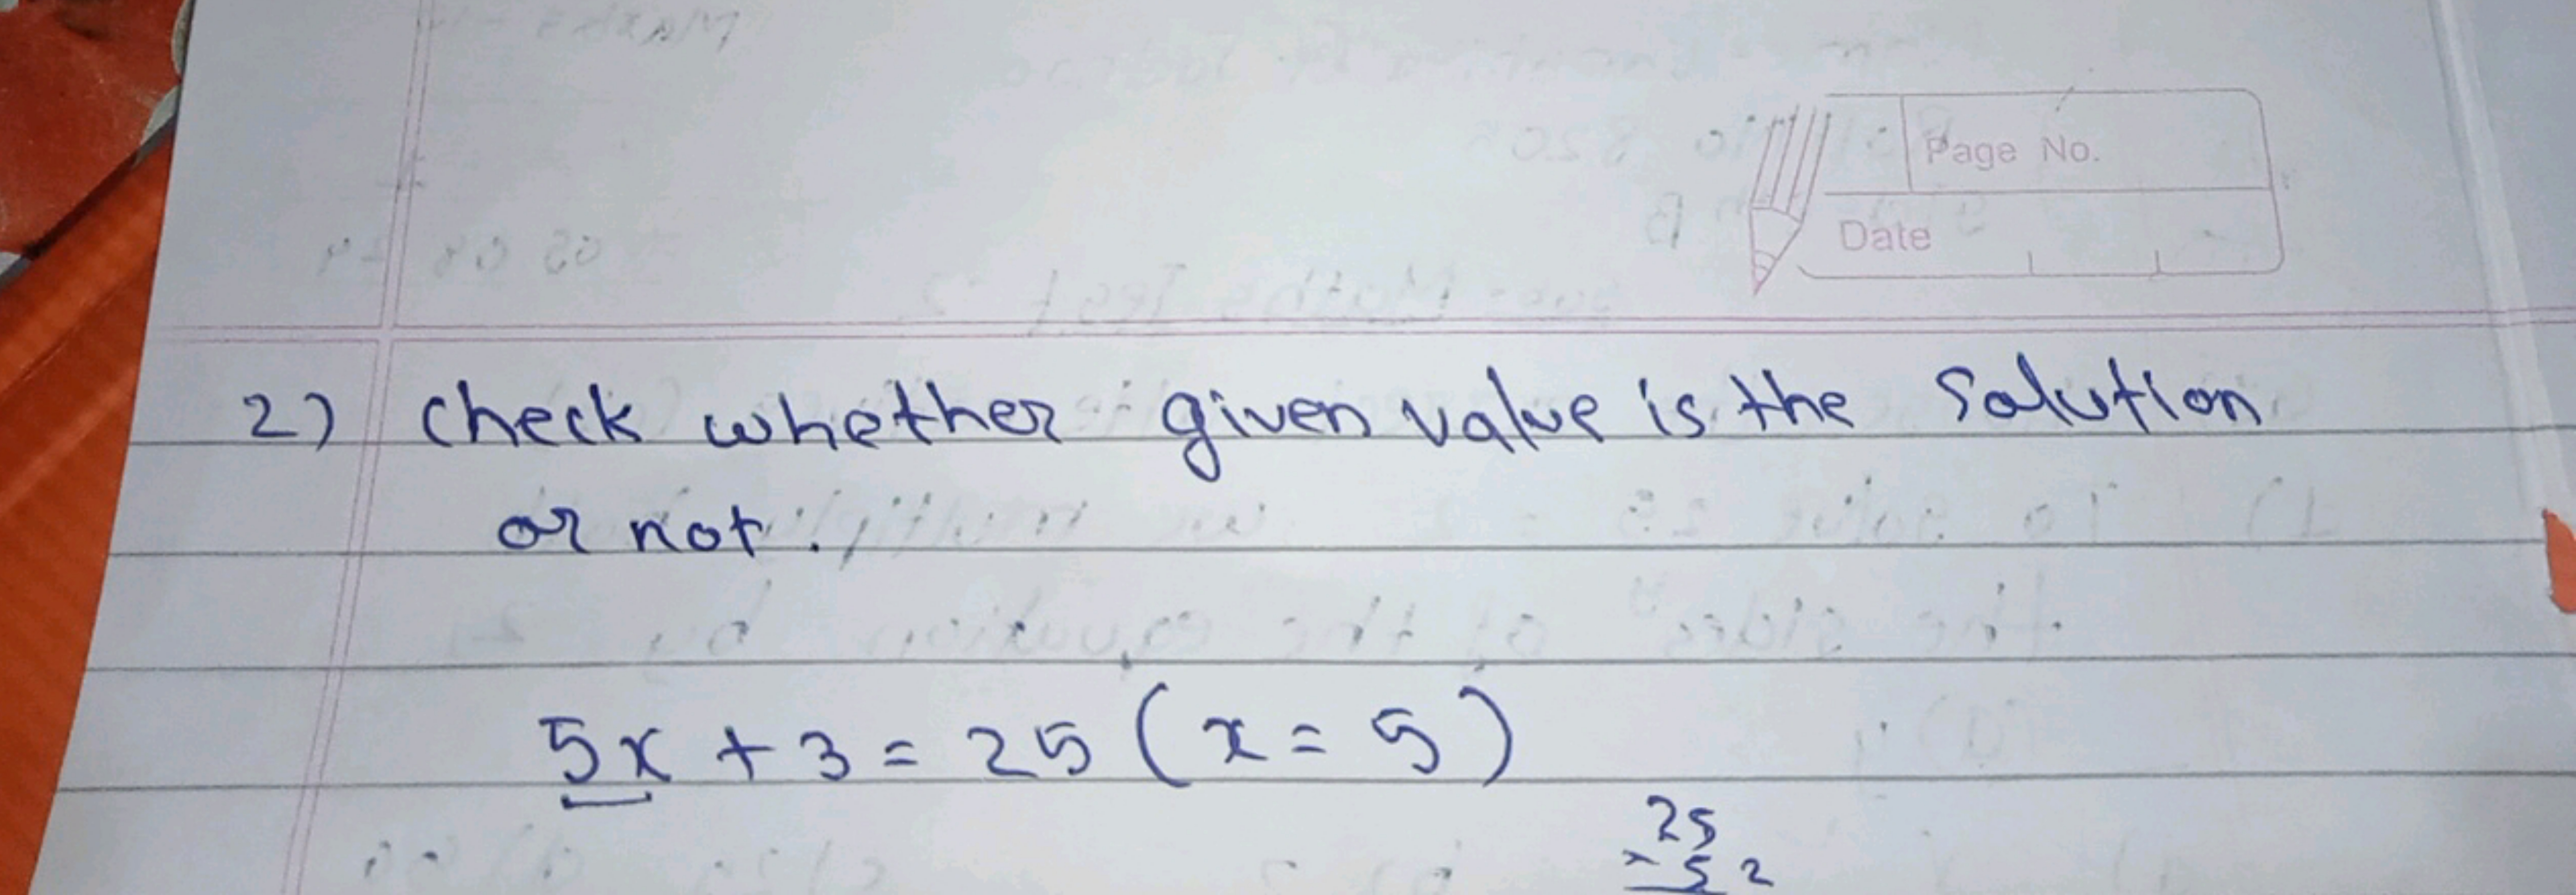 Page No.
Date
2) check whether given value is the solution
or not.
5x + 3 = 25 (x = 5)
25
52